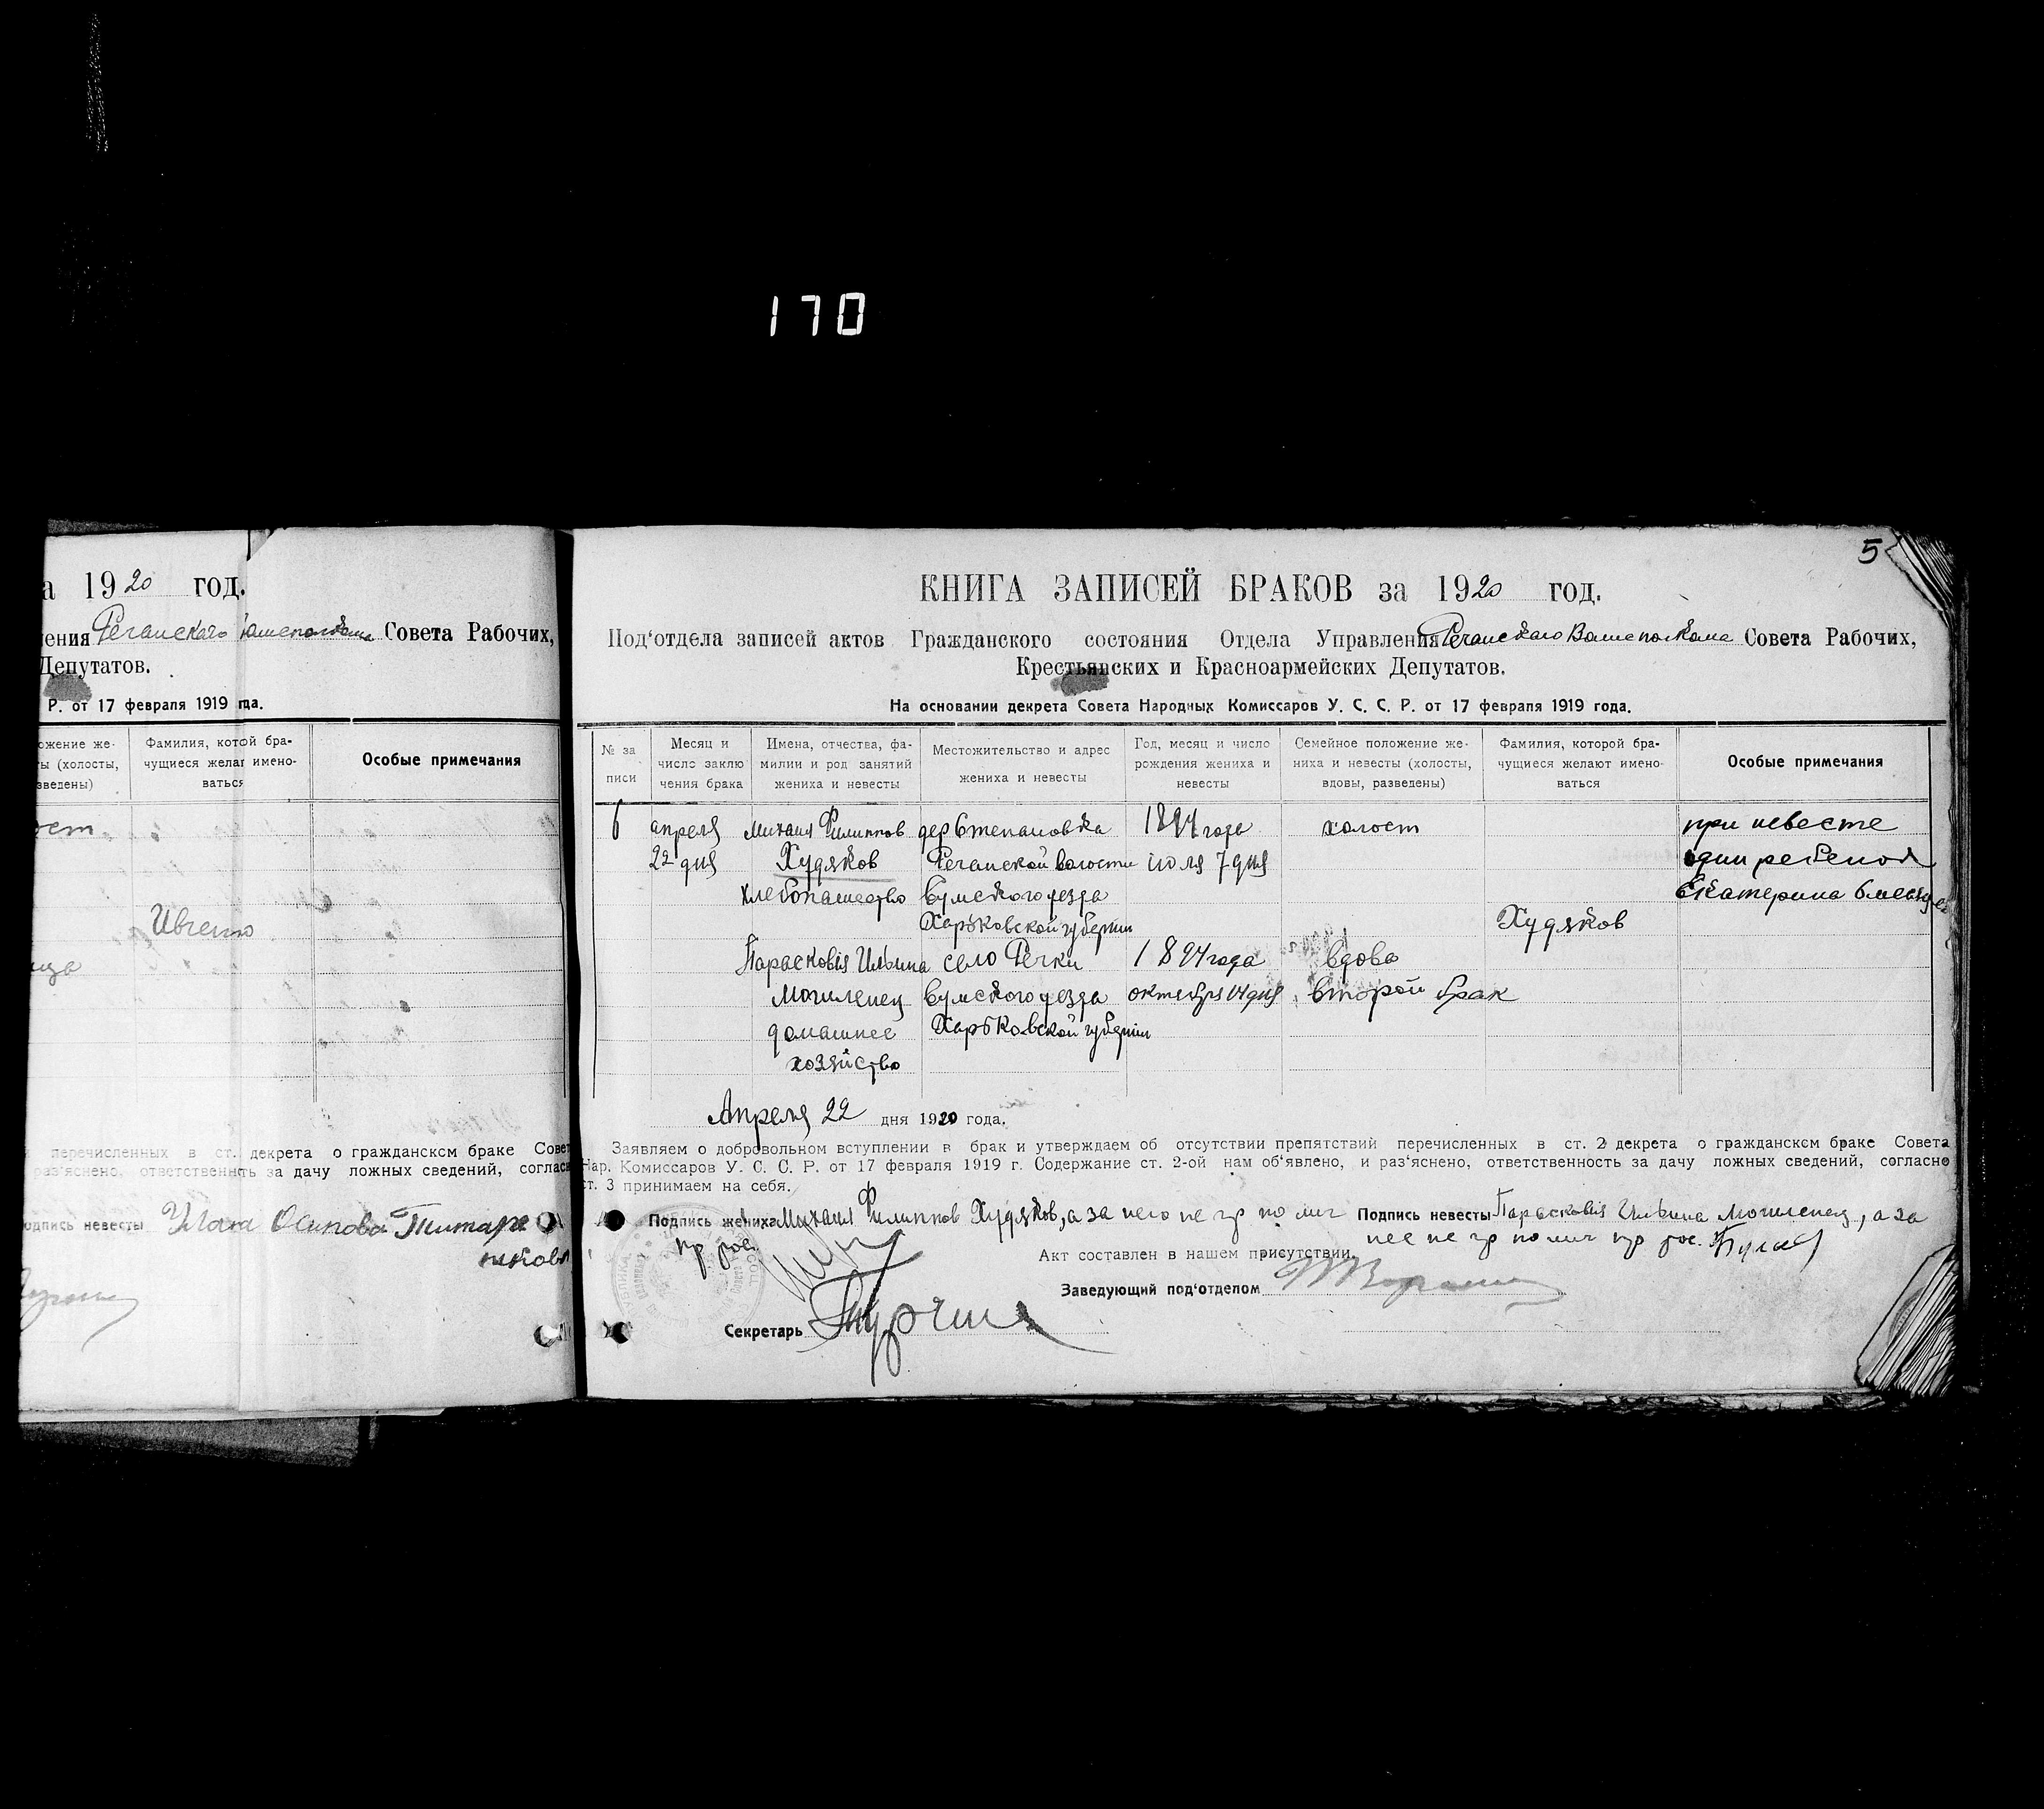 170
а 1920 год.
ления Речанскаго Совета Рабочих,
Депутатов.
Р. от 17 февраля 1919 года.
ожение же-
ты (холосты,
зведены)
Фамилия, котой бра-
чущиеся желаг имено-
ваться
Особые примечания
ост
Ивченко
ица
и перечисленных в ст. декрета о гражданском браке Совет
раз'яснено, ответственнсть за дачу ложных сведений, соглас
одпись невесты Улита Осипова Титаре
нкова
5
КНИГА ЗАПИСЕЙ БРАКОВ за 1920 год.
Под'отдела записей актов Гражданского состояния Отдела Управления Речанскаго Волисполкома Совета Рабочих,
Крестьянских и Красноармейских Депутатов.
На основании декрета Совета Народных Комиссаров У. С. С. Р. от 17 февраля 1919 года.
№ за
писи
Месяц и
число заклю
чения брака
Имена, отчества, фа-
милии и род занятий
жениха и невесты
Местожительство и адрес
жениха и невесты
Год, месяц и число
рождения жениха и
невесты
Семейное положение же-
ниха и невесты (холосты,
вдовы, разведены)
Фамилия, которой бра-
чущиеся желают имено-
ваться
Особые примечания
6
апреля
22 дня
Михаил Филиппов
Худяков
хлебопашество
дер Степановка
Речанской волости
Сумского уезда
Харьковской губернии
1894 года
июля 7 дня
холост
Худяков
при невесте
один ребенок
Екатерина 6 месяцев
Парасковія Ильина
Могиленец
домашнее
хозяйство
село Речки
Сумского уезда
Харьковской губернии
1894 года
октября 14 дня
вдова
второй брак
Апреля 22 дня 1920 года.
Заявляем о добровольном вступлении в брак и утверждаем об отсутствии препятствий перечисленных в ст. 2 декрета о гражданском браке Совета
Нар. Комиссаров У. С. С. Р. от 17 февраля 1919 г. Содержание ст. 2-ой нам об'явлено, и раз'яснено, ответственность за дачу ложных сведений, согласно
ст. 3 принимаем на себя.
Подпись жениха Михаил Филиппов Худяков, а за него не гр по лич
пр рос.
Подпись невесты Парасковія Ильина Могиленец, а за
нее не гр по лич пр рос.
Акт составлен в нашем присутствии.
Заведующий под'отделом
Секретарь